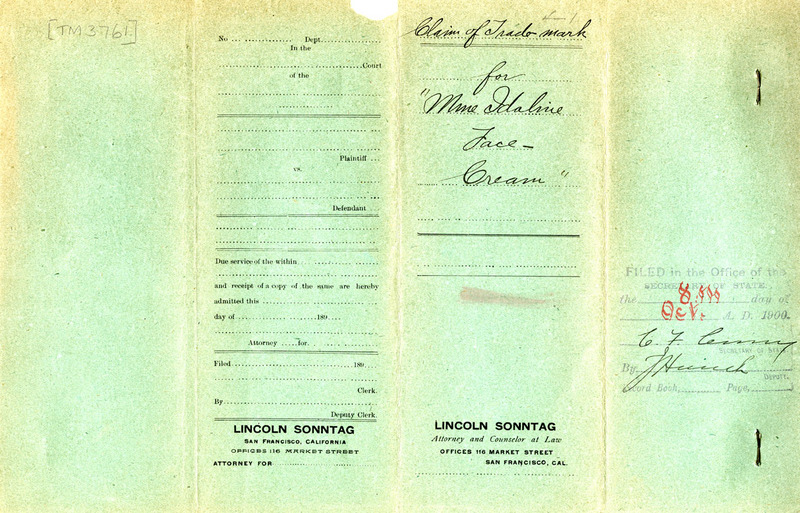 [TM 3761]
No Dept.
In the
Court
of the
Plaintiff
vs.
Defendant
Due service of the within
and receipt of a copy of the same are hereby
admitted this
day of 189
Attorney for
Filed 189
Clerk.
By
Deputy Clerk.
LINCOLN SONNTAG
SAN FRANCISCO, CALIFORNIA
OFFICES 116 MARKET STREET
ATTORNEY FOR
Claim of Trade mark
for
"Mme Idaline
Face-
Cream"
LINCOLN SONNTAG
Attorney and Counselor at Law
OFFICES 116 MARKET STREET
SAN FRANCISCO, CAL.
FILED in the Office of the
SECRETARY OF STATE
the 8th day of
Oct. A. D. 1900.
C. F. Curry
SECRETARY OF STATE
By
DEPUTY.
Record Book Page